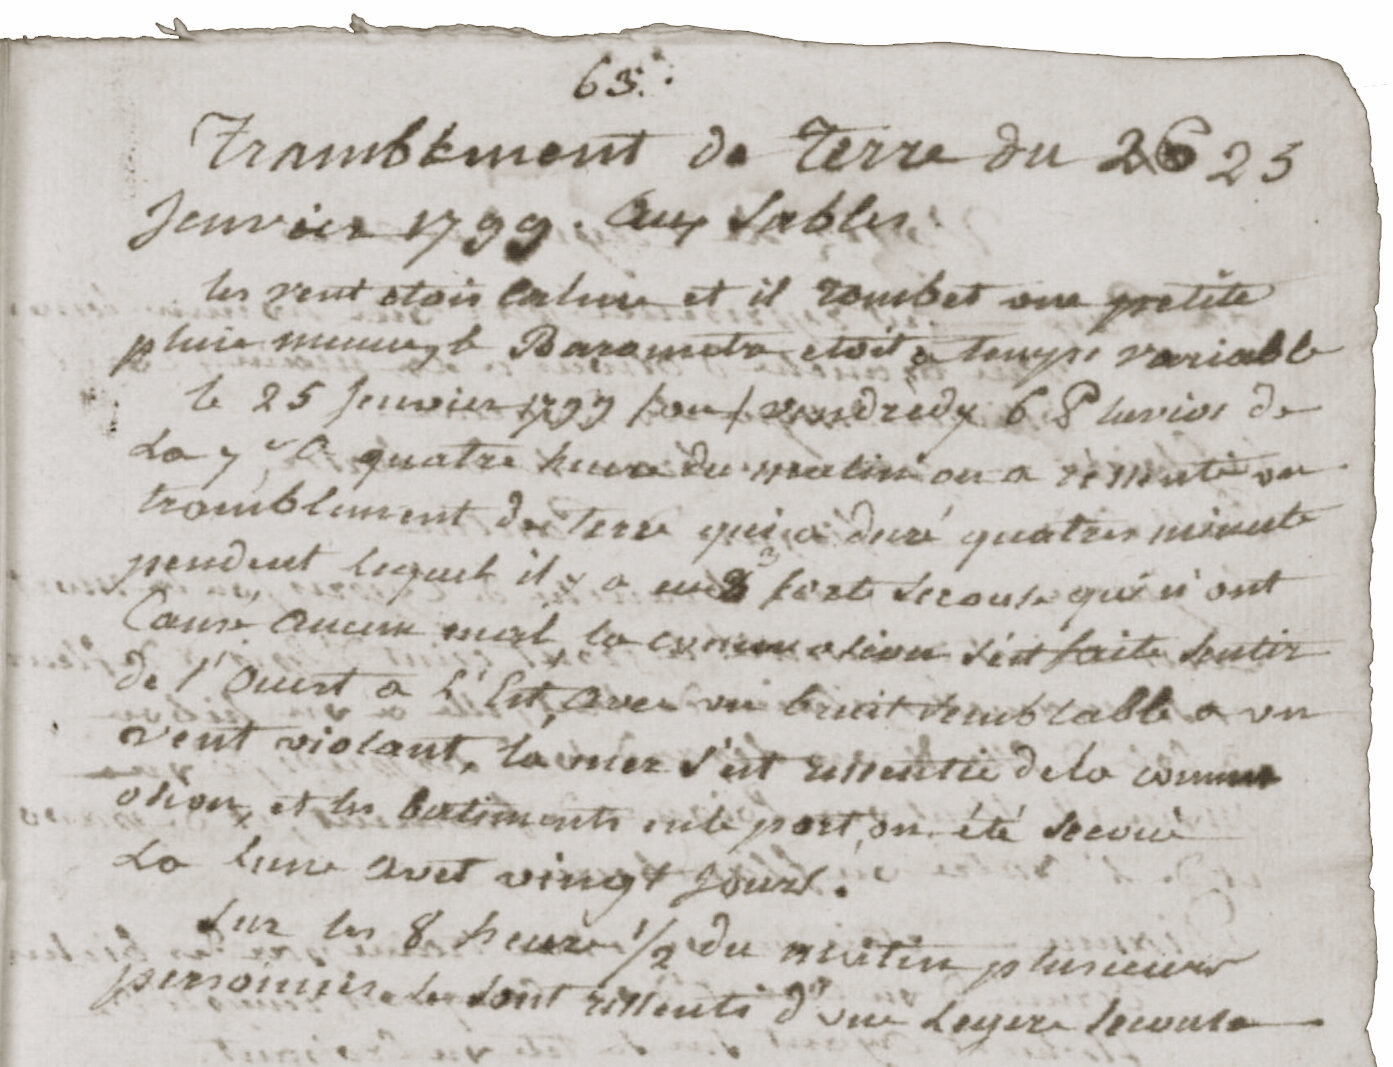 63.
Tramblement de Terre du 26 25
Janvier 1799. aux Sables.
les vent etois calme et il tombet une petite
pluie menue, le Barometre etoit a temps variable
le 25 Janvier 1799 / ou / vendredy 6 Pluviose de
La 7e a quatre heure du matin on a ressenti un
tramblement de terre qui a duré quatres minute
pendent lequel il y a eu 3 forte secouse qui n'ont
Causé aucun mal la commosion s'est faite sentir
de l'Ouest a L'Est, avec un bruit semblable a un
vent violant, la mer s'est ressentie de la comm
osion, et les batiments en le port, on été secoué
La lune avet vingt jours.
Sur les 8 heure 1/2 du matin plusieurs
personnes se sont ressenti d'une Legere secouse